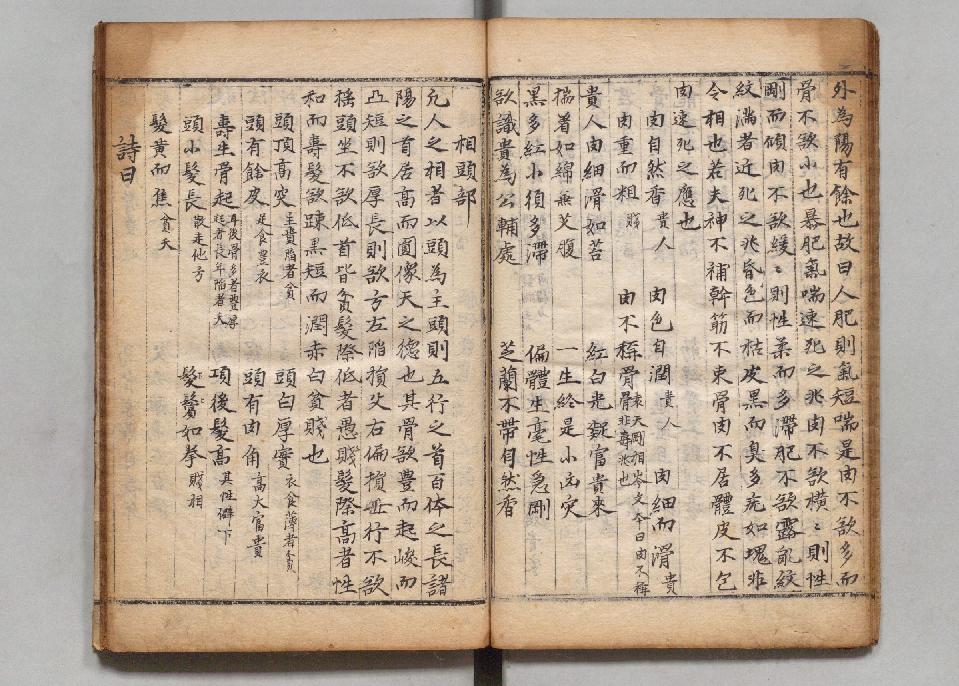 外為陽有餘也故曰人肥則氣短喘是肉不欲多而
骨不欲小也暴肥氣喘速死之兆肉不欲橫〻則性
剛而傾肉不欲緩〻則性柔而多滯肥不欲露
紋滿者近死之兆昏色而枯皮黑而臭多如塊非
令相也若夫神不補幹筋不束骨肉不居體皮不包
肉速死之應也
肉自然香 貴人 肉色自潤 貴人 肉細而滑 貴
肉重而粗 賤 肉不稱骨 袁天剛相岑文本曰肉不稱骨非壽兆也
貴人肉細滑如苔 紅白光凝富貴來
揣着如綿無父腹 一生終是小凶灾
黑多紅小須多滯 偏體生毫性急剛
欲識貴為公輔處 芝蘭不帶自然香
相頭部
凡人之相者以頭為主頭則五行之首百体之長諸
陽之首居高而圓像天之德也其骨欲豊而起峻而
凸短則欲厚長則欲方左陷損父右偏損母行不欲
搖頭坐不欲低首皆貧髮際低者愚賤髮際高者性
和而壽髮欲踈黑短而潤赤白貧賤也
頭頂高突 主貴陷者貧 頭白厚實 衣食薄者貧
頭有餘皮 足食豊衣 頭有肉角 高大富貴
壽生骨起 耳後骨多者豊厚起者長年陷者夭 項後髮高 其性僻下
頭小髮長 散走他方 髮鬢如拳 賤相
髮黄而焦 貧夭
詩曰